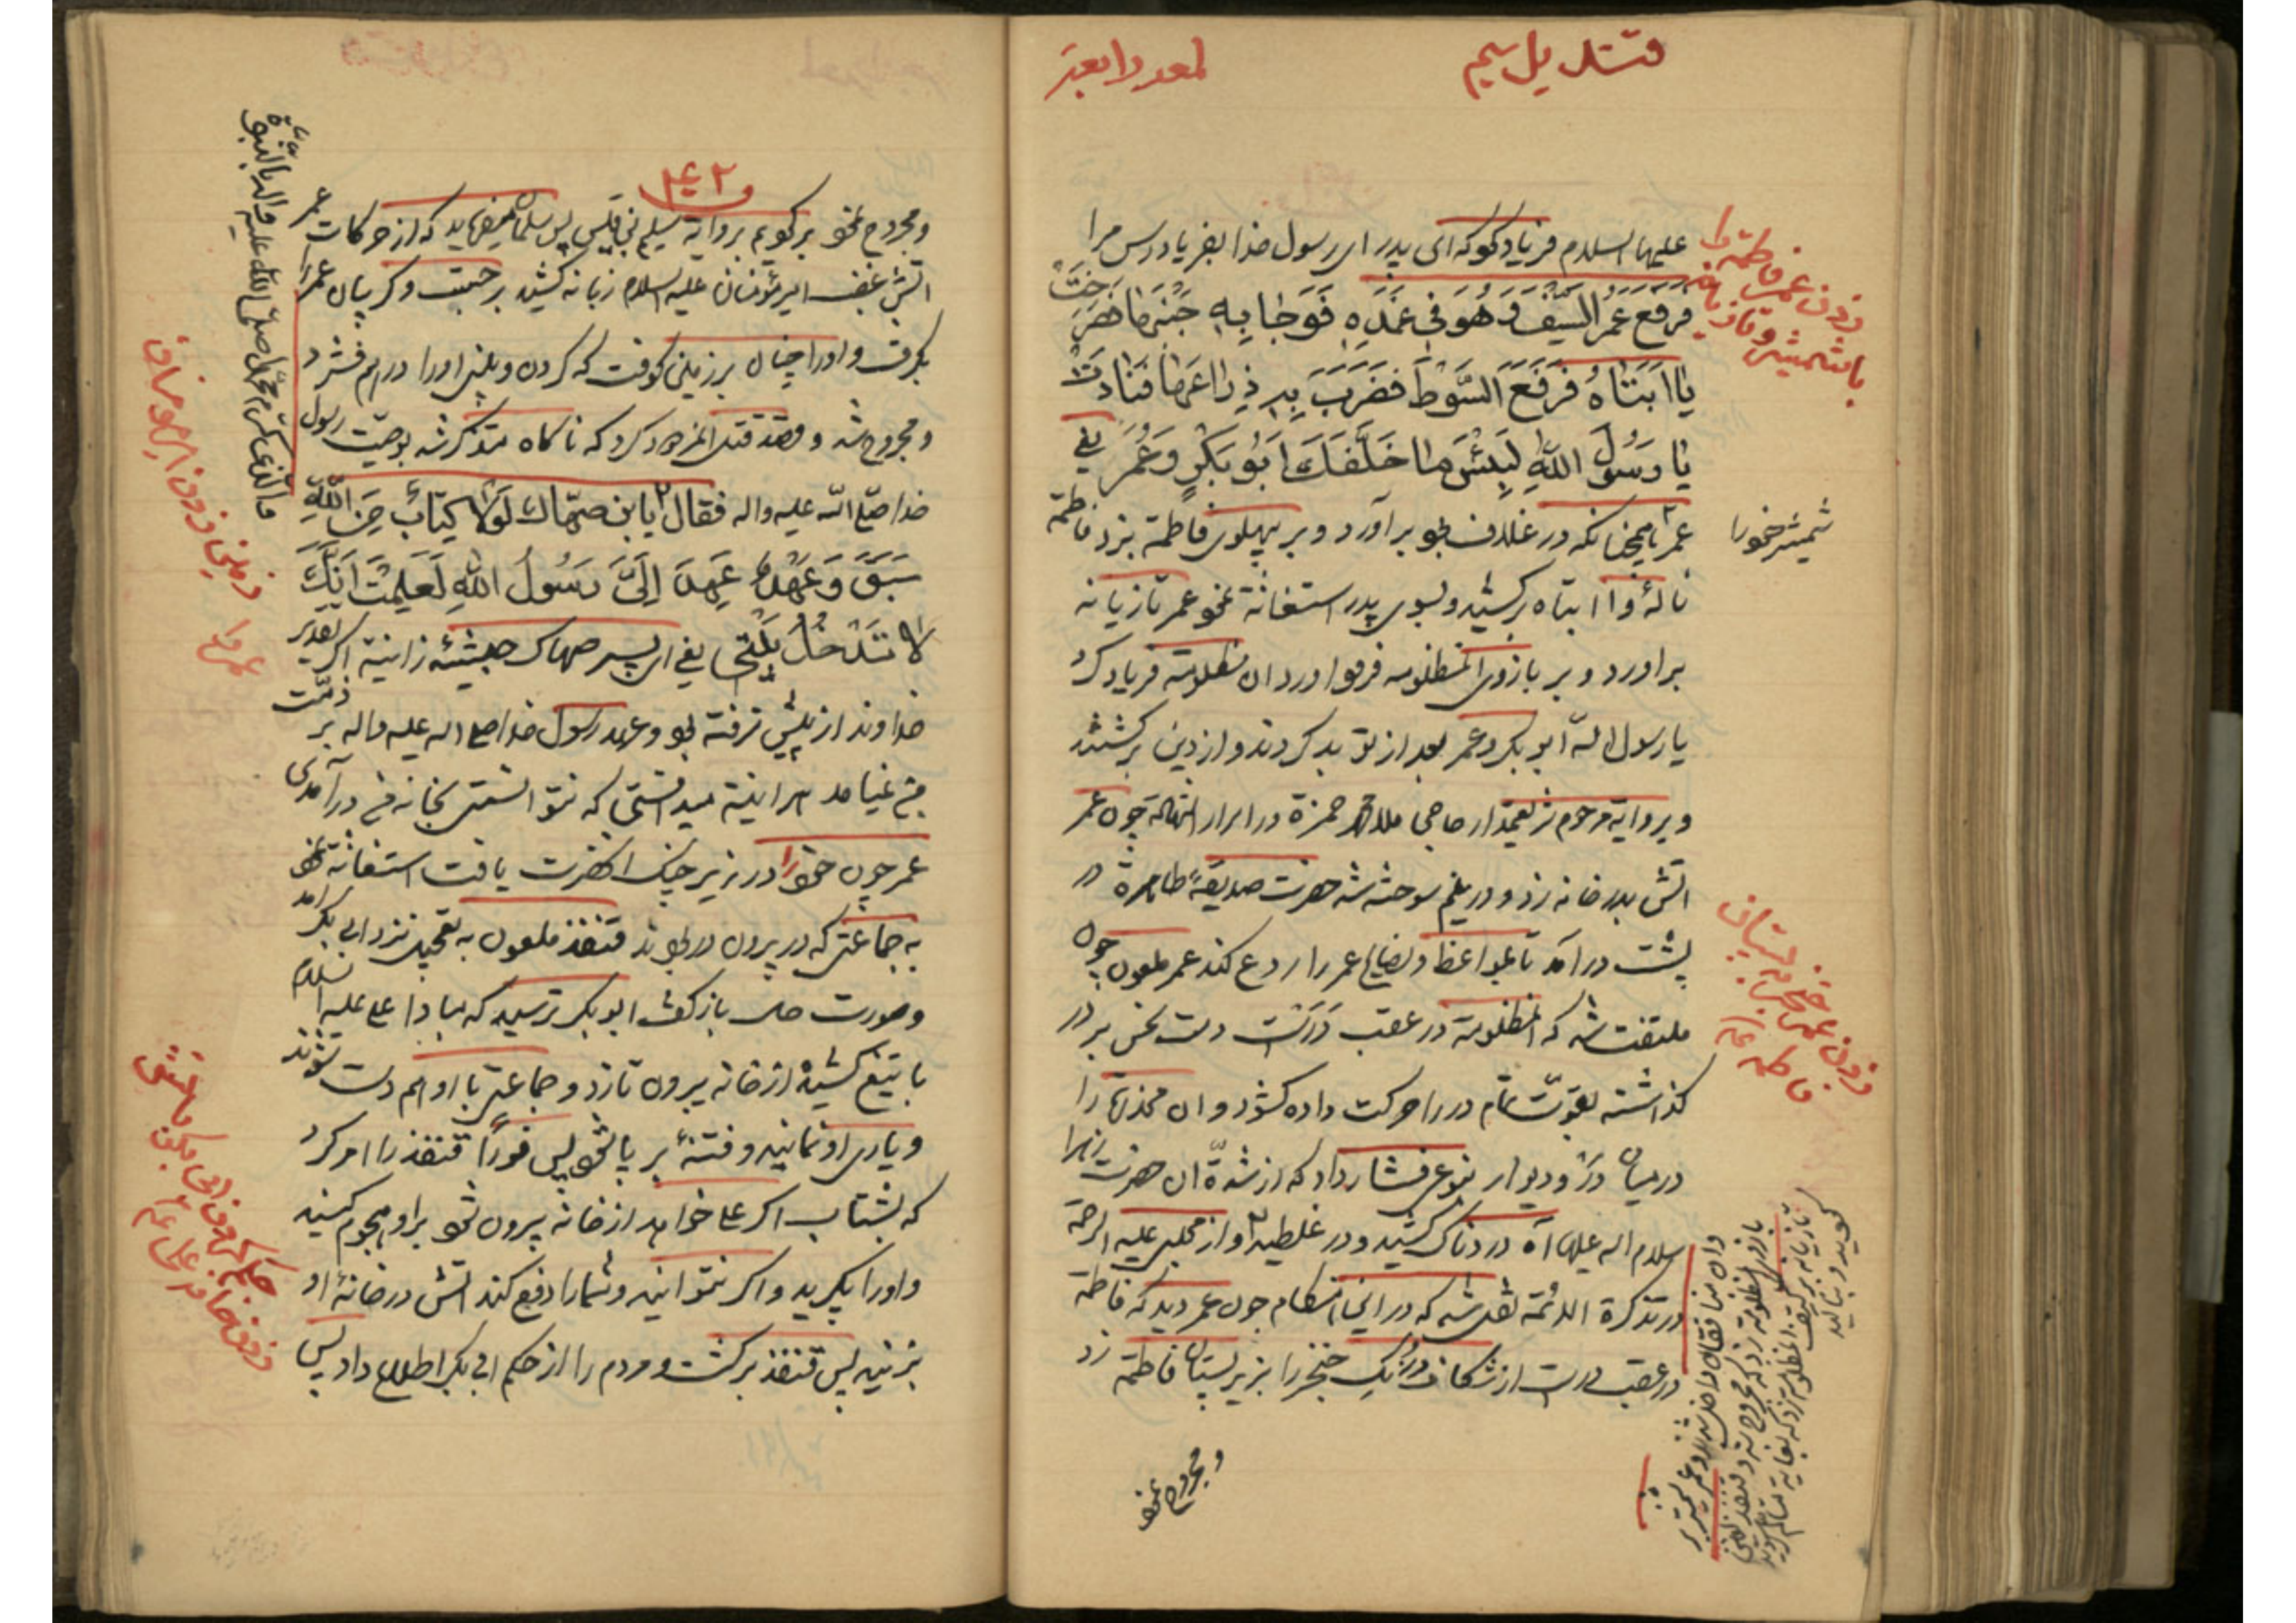 قندیل سیم
لمعه رابعه
علیها السلام فریاد کرد که ای پدر ای رسول خدا بفریاد رس مرا
فَرَفَعَ عُمَرُ السَّیْفَ وَ هُوَ فی غِمْدِهِ فَوَجَا بِهِ جَنْبَها فَصَرَخَتْ
یا اَبَتاهُ فَرَفَعَ السَّوْطَ فَضَرَبَ بِهِ ذِراعَها فَنادَتْ
یا رَسُولَ اللهِ لَبِئْسَ ما خَلَّفَكَ اَبُو بَكْرٍ وَ عُمَرُ یعنی
عمر همچنانکه در غلاف بود برآورد و بر پهلوی فاطمه بزد فاطمه
شمشیر خود را
نالهٔ وا ابتاه برکشید و بسوی پدر استغاثه نمود عمر تازیانه
براورد و بر بازوی انمظلومه فرود اورد ان مظلومه فریاد کرد
یا رسول الله ابوبکر و عمر بعد از تو بد کردند و از دین برگشتند
و بروایة مرحوم حاجی ملا محمد حمزة در اسرار چون عمر
اتش بدر خانه زد و در نیم سوخته شد حضرت صدیقهٔ طاهرة در
پشت در آمد تا بمواعظ و نصایح عمر را ردع کند عمر ملعون چون
ملتفت شد که انمظلومة در عقب در است دست نحس بر در
گذاشته بقوّت تمام در را حرکت داده گشود و ان مخدرة را
در میان در و دیوار بنوعی فشار داد که از شدّة ان حضرت زهرا
سلام اله علیها آه دردناک کشید و در غلطید و از مجلسی علیه الرحمة
در تذکرة الائمة نقل شده که در این هنگام چون عمر دید که فاطمة
در عقب در است از شکاف در یک خنجر را بزیر پستان فاطمة زد
و مجروح نمود
زدن عمر فاطمه را
با شمشیر و تازیانه
زدن عمر خنجر به پستان
فاطمه
۴۰۲
و مجروح نمود برگویم بروایة سلیم بن قیس پس سلمان میفرماید که از حرکات عمر
اتش غضب امیر مؤمنان علیه السلام زبانه کشید برجست و گریبان عمر را
بگرفت و او را چنان بر زمین کوفت که گردن و بینی او را در هم فشرد
و مجروح شد و قصد قتل کرد که ناگاه متذکر شد بوصیت رسول
خدا صلّی الله علیه و اله فقال یابن صهّاك لَوْلا كِتابٌ مِنَ اللهِ
سَبَقَ وَ عَهْدٌ عَهِدَ اِلَیَّ رَسُولُ اللهِ لَعَلِمْتَ اَنَّكَ
لا تَدْخُلُ بَیْتی یعنی ای پسر صهاک حبشیّه زانیة اگر تقدیر
خداوند از پیش نرفته بود و عهد رسول خدا صلی اله علیه و اله بر ذمّت
من نمیامد هر اینه میدانستی که نتوانستی بخانه من درآمدی
عمر چون خود را در زیر چنگ انحضرت یافت استغاثه نمود
به جماعتی که در بیرون در بودند قنفذ ملعون به تعجیل نزد ابی بکر امد
و صورت حال بازگفت ابوبکر ترسید که مبادا علی علیه السلام
با تیغ کشیده از خانه بیرون تازد و جماعتی با او هم دست شوند
و یاری او نمایند و فتنهٔ بر پا شود پس فوراً قنفذ را امر کرد
که بشتاب اگر علی خواهد از خانه بیرون شود بر او هجوم کنید
و او را بگیرید و اگر نتوانید و شما را دفع کند اتش در خانهٔ او
بزنید پس قنفذ برگشت و مردم را از حکم ابی بکر اطلاع داد پس
والّذی کرّم محمّدا صلّی الله علیه و اله بالنبوّة
عمر را